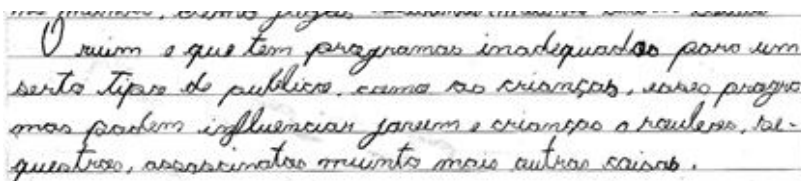 O ruim e que tem programas inadequados para um
serto tipo de publico, como as crianças, esses progra
mas podem influenciar jovem e crianças a roubos, se-
questros, assascinatos muinto mais outras coisas.